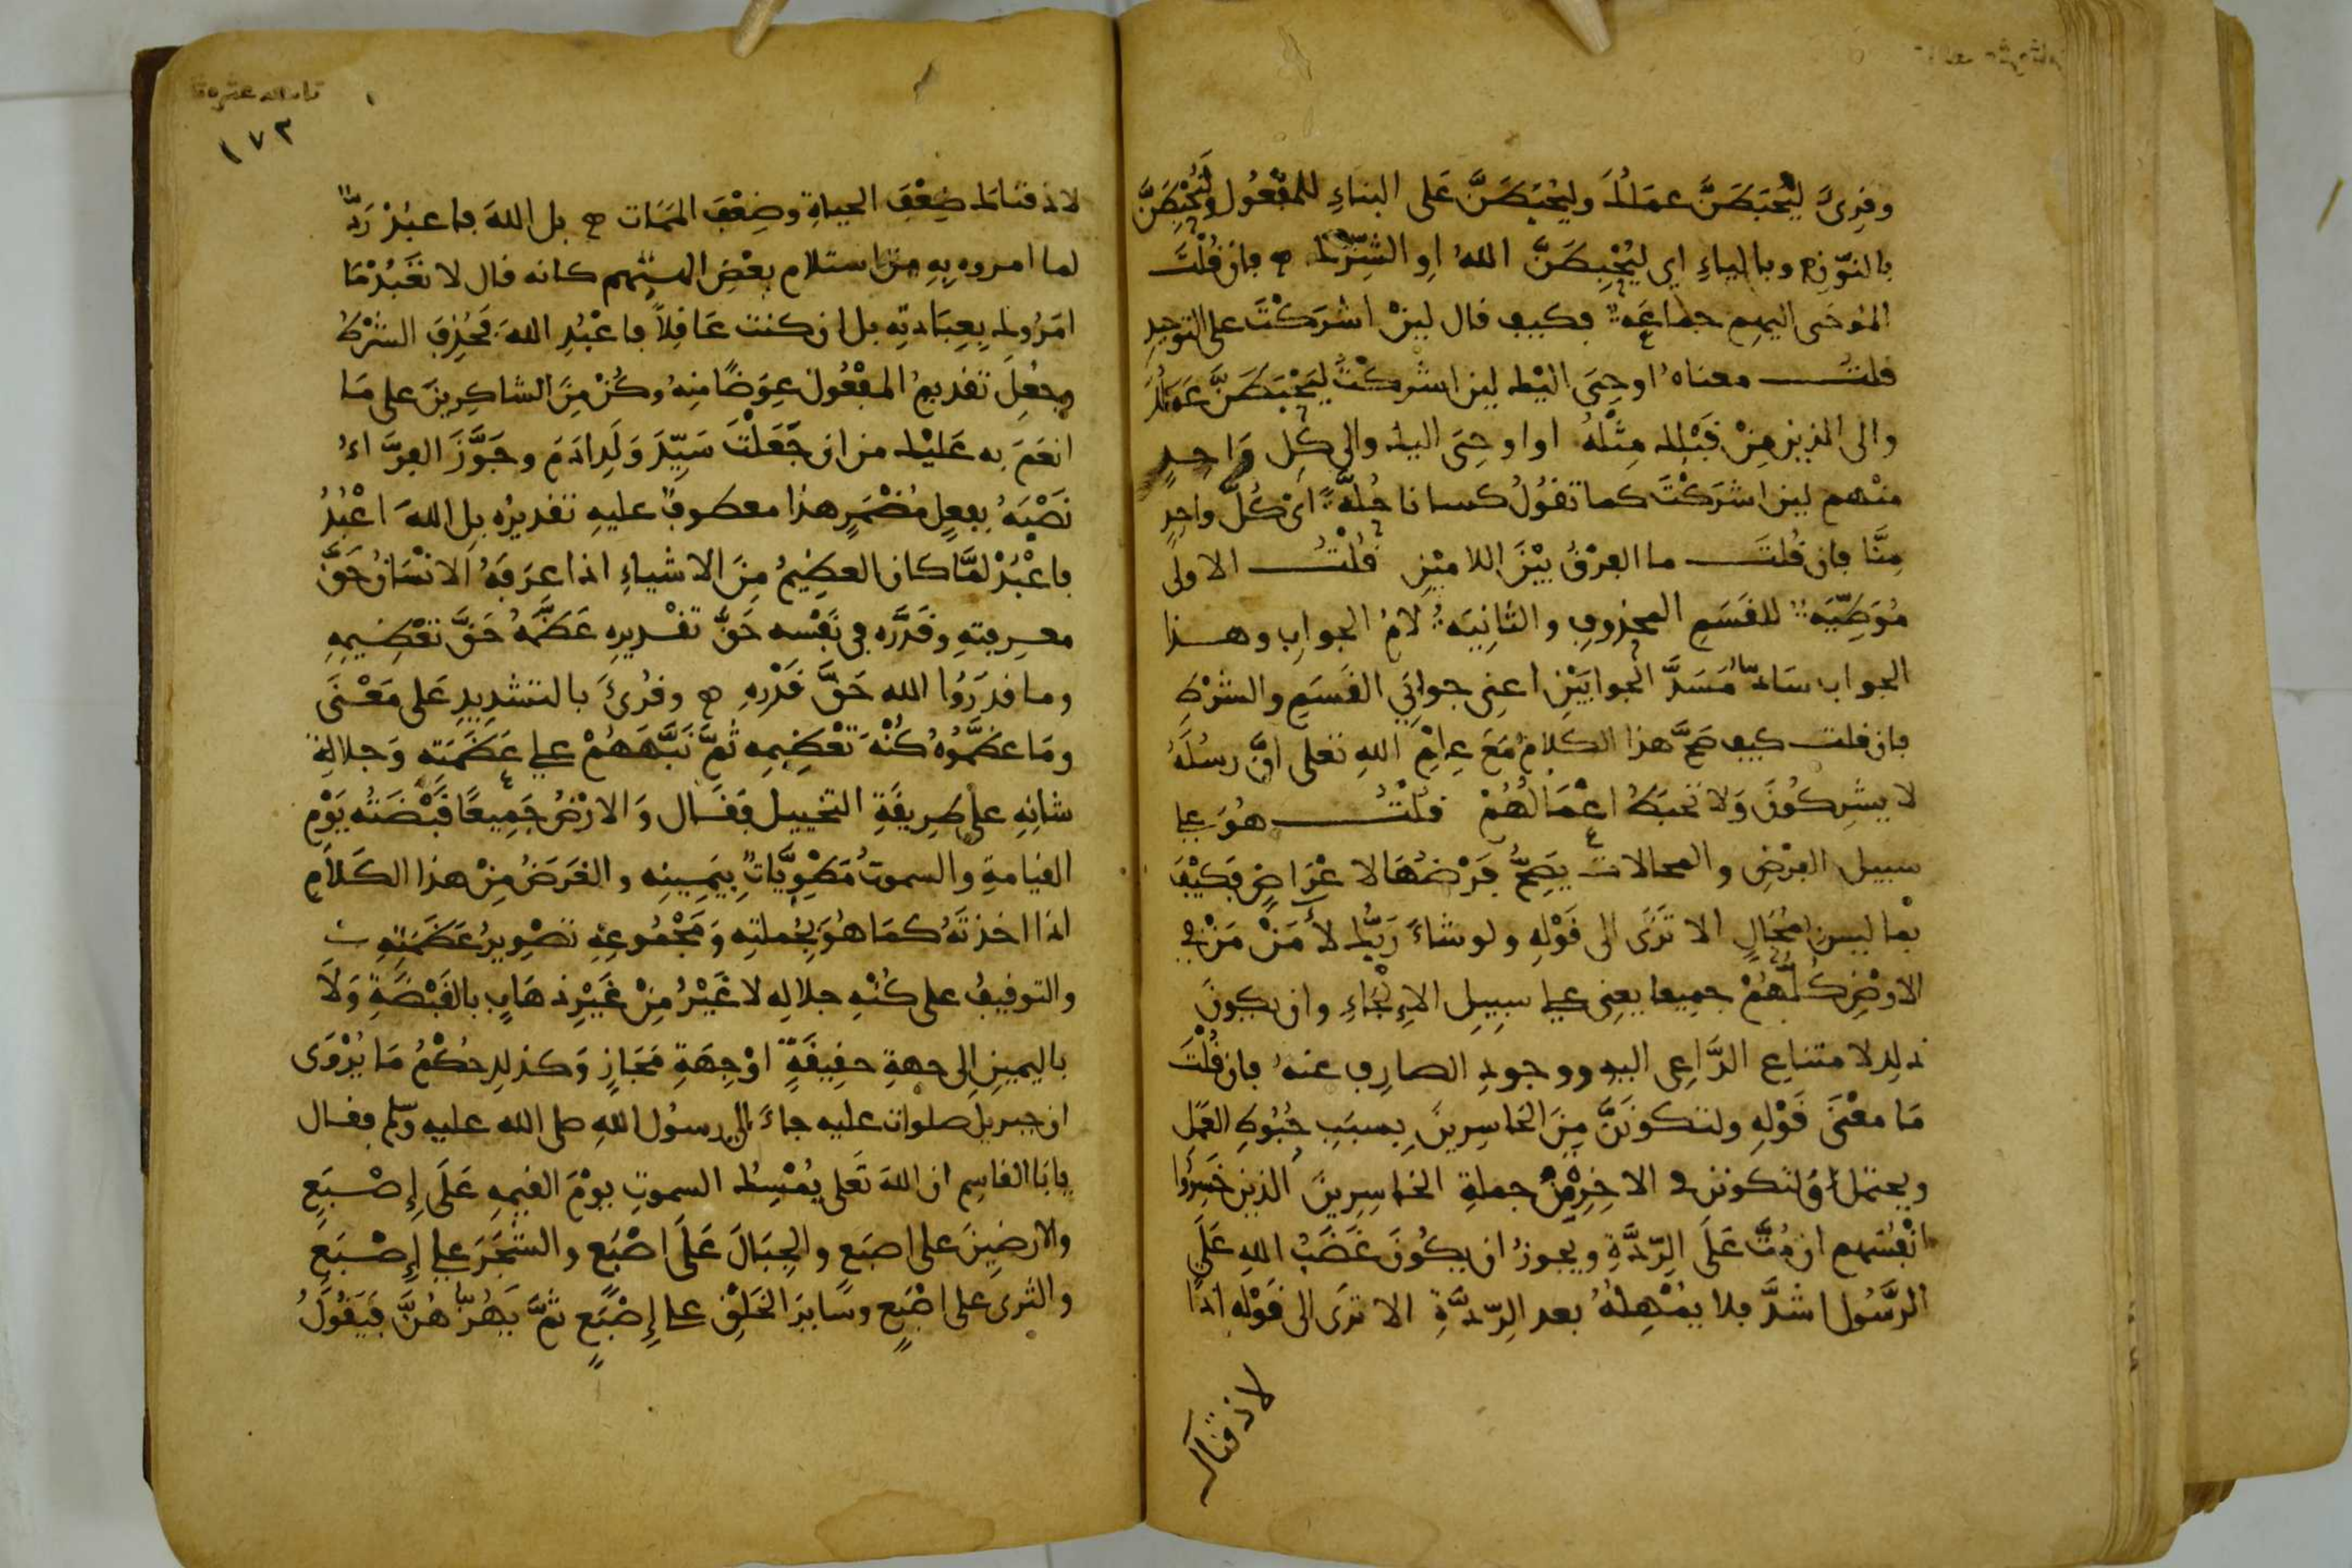 وقرئ ليحبطن عملك وليحبطن على البناء للمفعول ولنحبطن
بالنون وبالياء اي ليحبطن الله او الشرك فان قلت
الموحى اليهم جماعة فكيف قال لين اشركت على التوحيد
قلت معناه اوحي اليك لين اشركت ليحبطن عملك
والى الذين من قبلك مثله او اوحي اليك والى كل واحد
منهم لين اشركت كما تقول كسانا حلة اي كل واحد
منا فان قلت ما الفرق بين اللامين قلت الاولى
موطية للقسم المحذوف والثانية لام الجواب وهذا
الجواب ساد مسد الجوابين اعني جوابي القسم والشرط
فان قلت كيف صح هذا الكلام مع علم الله تعلى ان رسله
لا يشركون ولا تحبط اعمالهم قلت هو على
سبيل الفرض والمحالات يصح فرضها لاغراض فكيف
بما ليس بمحال الا ترى الى قوله ولو شاء ربك لأمن من في
الارض كلهم جميعا يعني على سبيل الإلجاء وان يكون
ذلك لامتناع الداعي اليه ووجود الصارف عنه فان قلت
ما معنى قوله ولتكونن من الخاسرين بسبب حبوط العمل
ويحتمل ولتكونن في الاخرة من جملة الخاسرين الذين خسروا
انفسهم ان مت على الردة ويجوز ان يكون غضب الله على
الرسول اشد فلا يمهله بعد الردة الا ترى الى قوله اذا
لاذقناك
١٧٢
لاذقناك ضعف الحياة وضعف الممات بل الله فاعبد رد
لما امروه به من استلام بعض الهتهم كانه قال لا تعبد ما
امروك بعبادته بل ان كنت عاقلا فاعبد الله فحذف الشرط
وجعل تقديم المفعول عوضا منه وكن من الشاكرين على ما
انعم به عليك من ان جعلت سيد ولد ادم وجوز الفراء
نصبه بفعل مضمر هذا معطوف عليه تقديره بل الله اعبد
فاعبد لما كان العظيم من الاشياء اذا عرفه الانسان حق
معرفته وقدره في نفسه حق تقديره عظمه حق تعظيمه
وما قدروا الله حق قدره وقرئ بالتشديد على معنى
وما عظموه كنه تعظيمه ثم نبههم على عظمته وجلالة
شانه على طريقة التخييل فقال والارض جميعا قبضته يوم
القيامة والسموت مطويات بيمينه والغرض من هذا الكلام
اذا اخذته كما هو بجملته ومجموعه تصوير عظمته
والتوقيف على كنه جلاله لا غير من غير ذهاب بالقبضة ولا
باليمين الى جهة حقيقة او جهة مجاز وكذلك حكم ما يروى
ان جبريل صلوات عليه جاء الى رسول الله صلى الله عليه وسلم فقال
يابا القاسم ان الله تعلى يمسك السموت يوم القيمه على إصبع
والارضين على اصبع والجبال على اصبع والشجر على إصبع
والثرى على اصبع وساير الخلق على إصبع ثم يهزهن فيقول